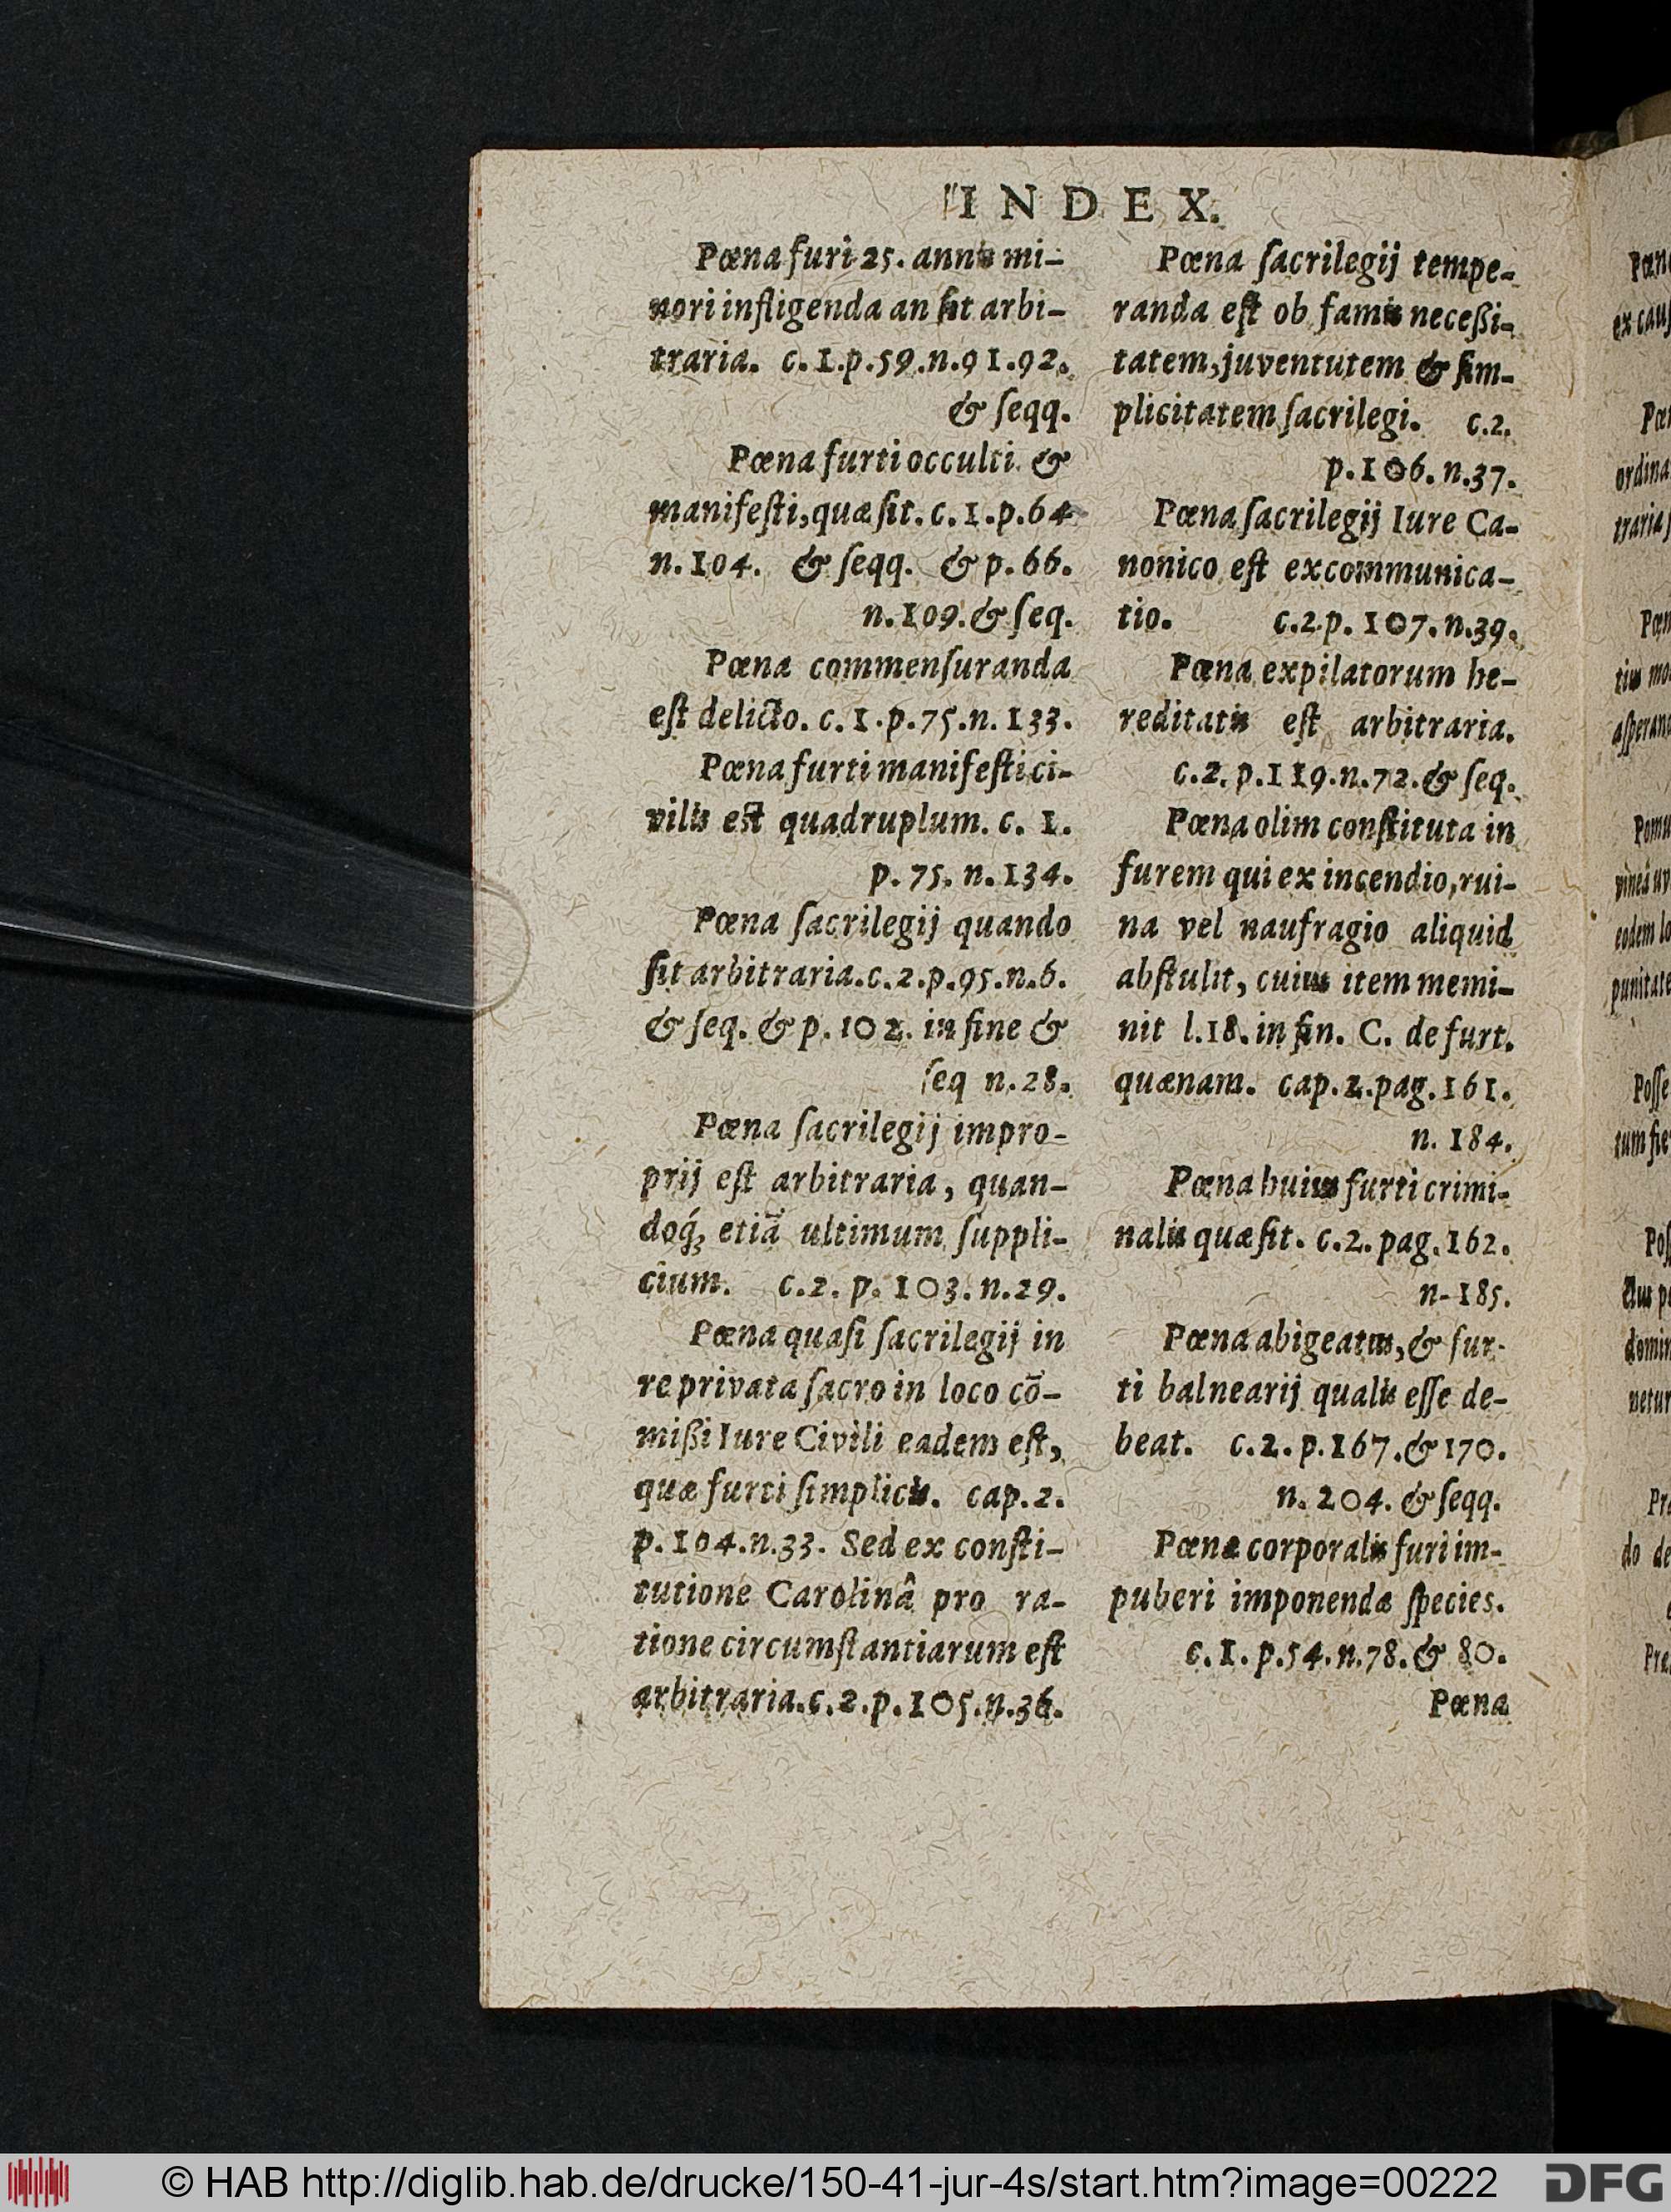 INDEX.
Pœna furi 25. annis mi-
nori infligenda an ſit arbi-
traria. c. 1.p.59.n.91.92.
& ſeqq.
Pœna furti occulti &
manifeſti, quæ ſit. c. 1. p. 64
n. 104. & ſeqq. & p. 66.
n. 109. & ſeq.
Pœna commenſuranda
eſt delicto. c. 1. p. 75. n. 133.
Pœna furti manifeſti ci-
vilis eſt quadruplum. c. 1.
p. 75. n. 134.
Pœna ſacrilegij quando
ſit arbitraria. c. 2. p. 95. n. 6.
& ſeq. & p. 102. in fine &
ſeq n. 28.
Pœna ſacrilegij impro-
prij eſt arbitraria, quan-
doq́; etiã ultimum ſuppli-
cium. c. 2. p. 103. n. 29.
Pœna quaſi ſacrilegij in
re privata ſacro in loco cõ-
mißi Iure Civili eadem eſt,
quæ furti ſimplicis. cap. 2.
p. 104. n. 33. Sed ex conſti-
tutione Carolinâ pro ra-
tione circumſtantiarum eſt
arbitraria. c. 2. p. 105. n. 36.
Pœna ſacrilegij tempe-
randa eſt ob famis neceßi-
tatem, juventutem & ſim-
plicitatem ſacrilegi. c. 2.
p. 106. n. 37.
Pœna ſacrilegij Iure Ca-
nonico eſt excommunica-
tio. c. 2. p. 107. n. 39.
Pœna expilatorum he-
reditatis eſt arbitraria.
c. 2. p. 119. n. 72. & ſeq.
Pœna olim conſtituta in
furem qui ex incendio, rui-
na vel naufragio aliquid
abſtulit, cuius item memi-
nit l. 18. in fin. C. de furt.
quænam. cap. 2. pag. 161.
n. 184.
Pœna huius furti crimi-
nalis quæ ſit. c. 2. pag. 162.
n- 185.
Pœna abigeatus, & fur-
ti balnearij qualis eſſe de-
beat. c. 2. p. 167. & 170.
n. 204. & ſeqq.
Pœnæ corporalis furi im-
puberi imponendæ ſpecies.
c. 1. p. 54. n. 78. & 80.
Pœna
© HAB http://diglib.hab.de/drucke/150-41-jur-4s/start.htm?image=00222
DFG